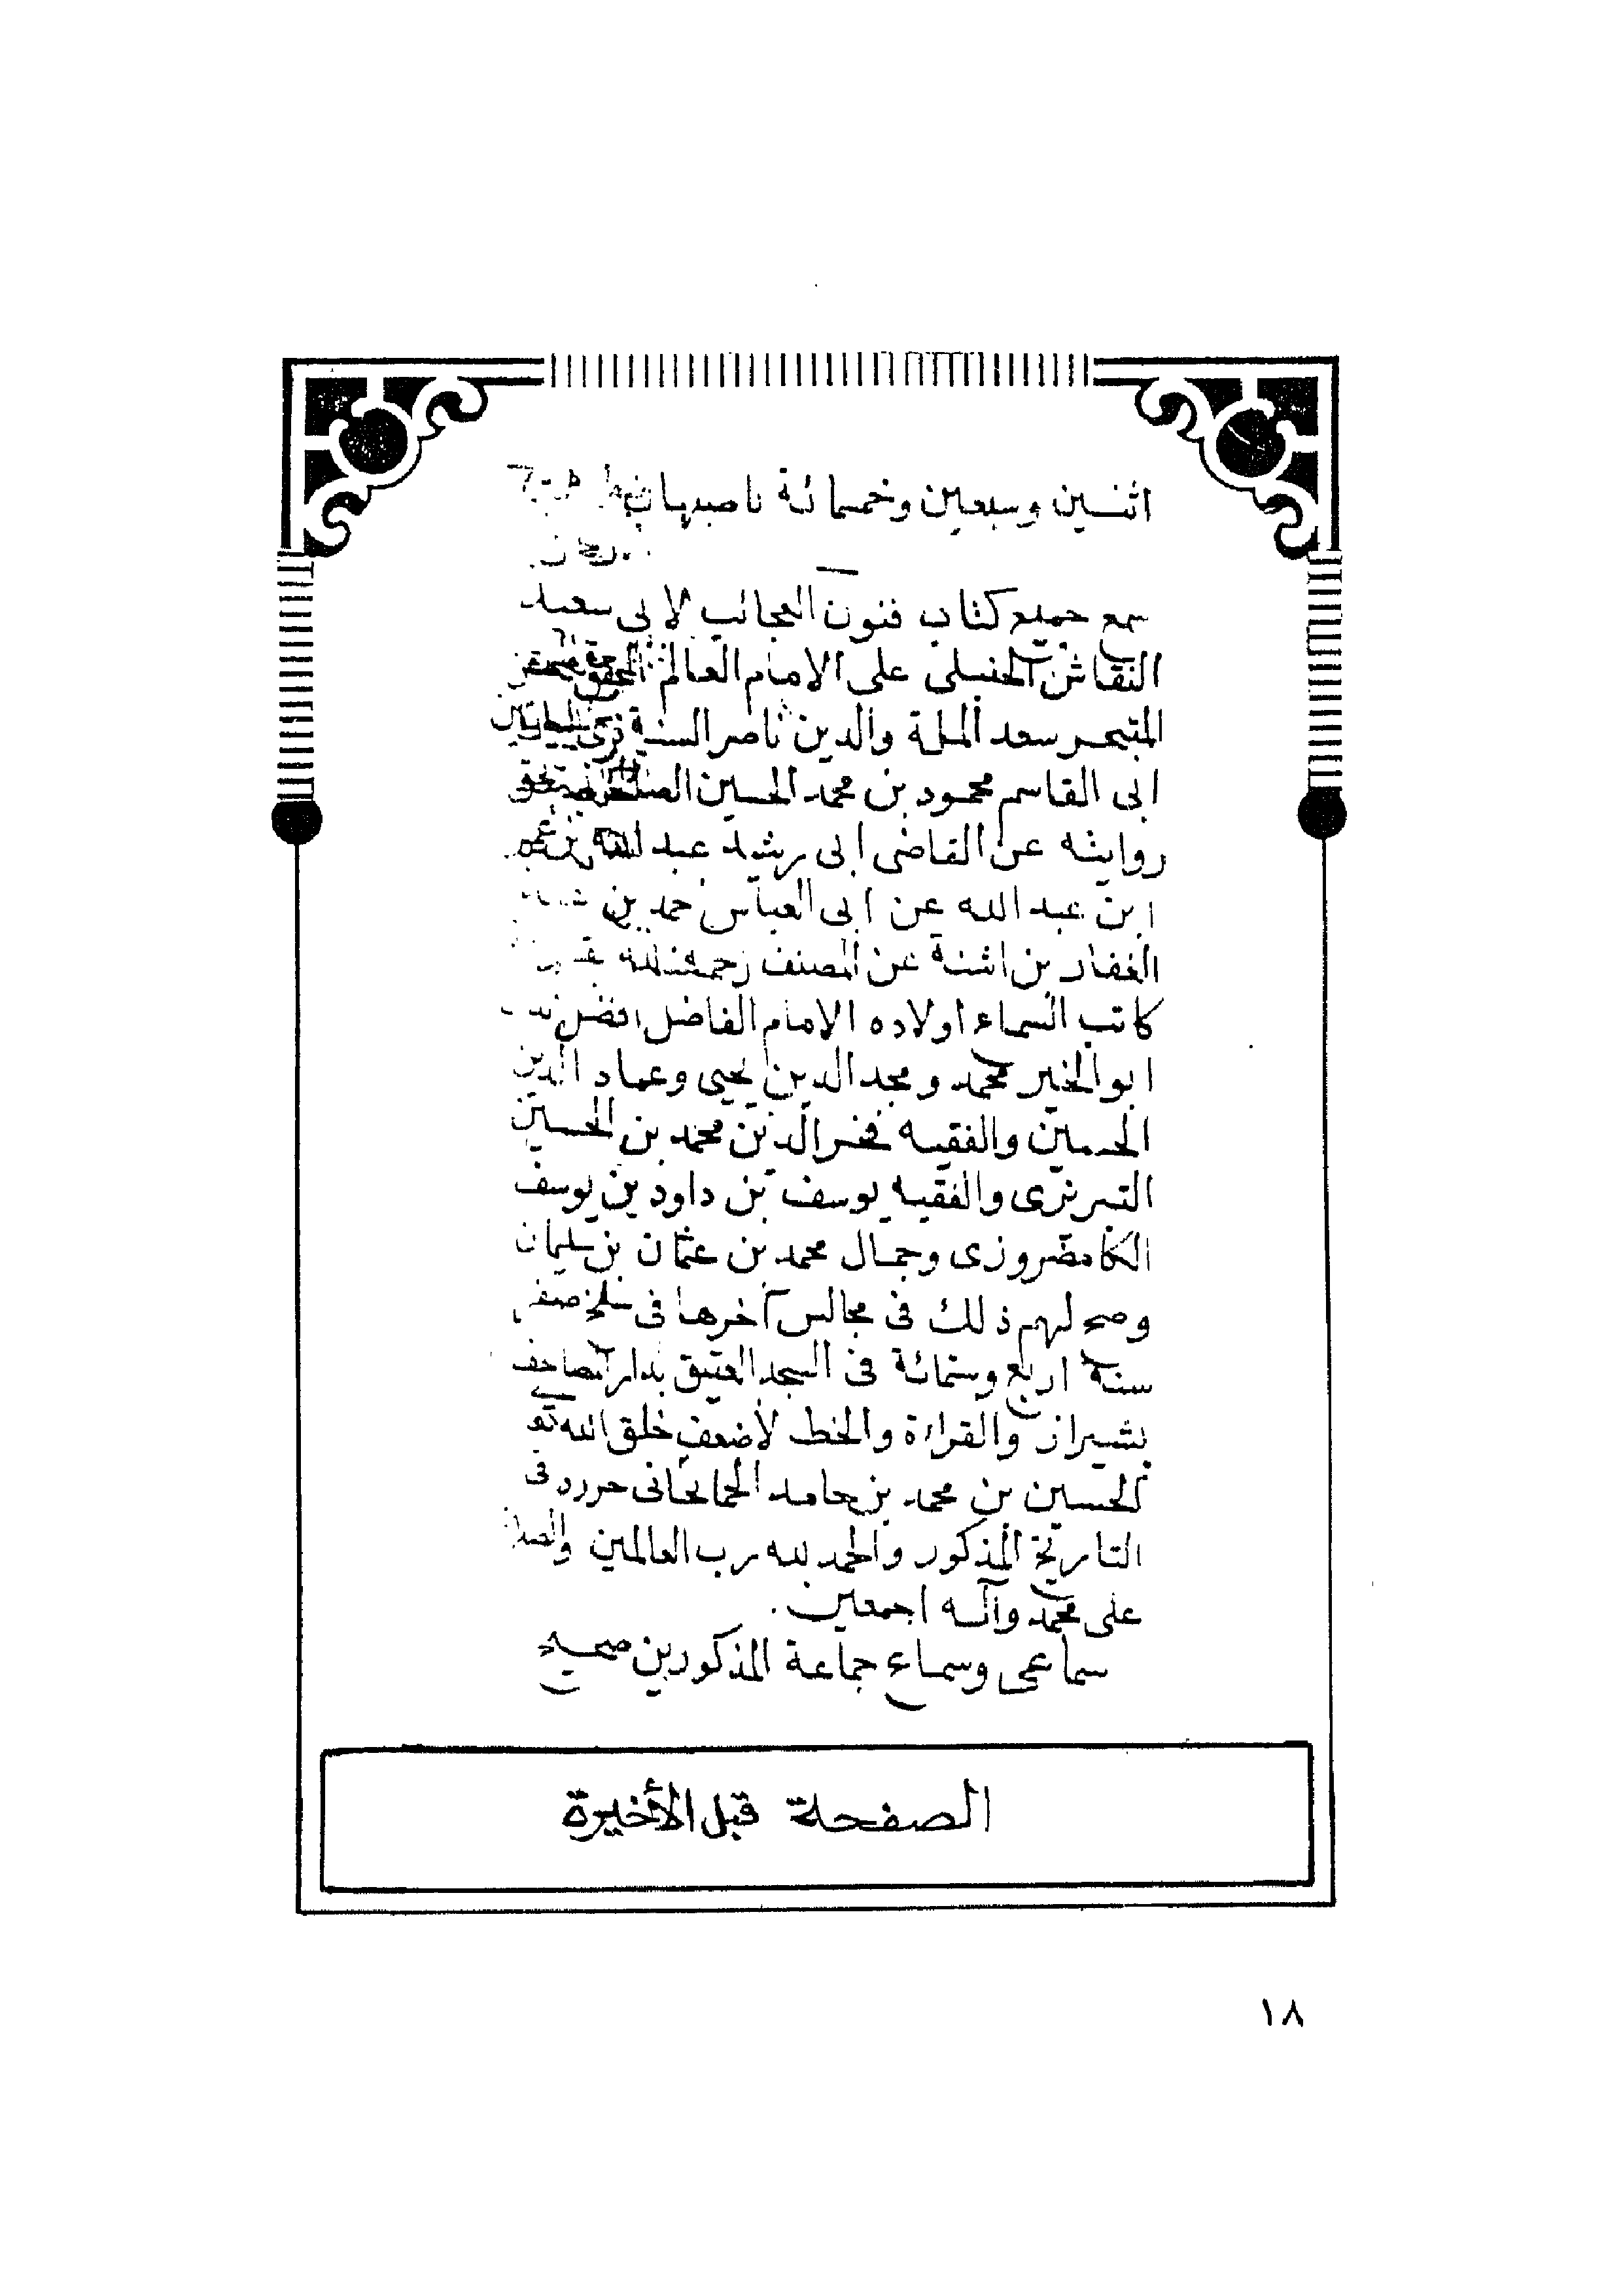 اثنين وسبعين وخمسمائة باصبهان
سمع جميع كتاب فنون العجائب لابى سعيد
النقاش الحنبلى على الامام العالم
المتبحر سعد الملة والدين ناصر السنة
ابى القاسم محمود بن محمد الحسين
روايته عن القاضى ابى رشيد عبد الله بن
ابن عبد الله عن ابى العباس احمد بن
الغفار بن اشتة عن المصنف رحمه الله
كاتب السماء اولاده الامام الفاضل افضل
ابو الخير محمد ومجد الدين يحيى وعماد الدين
الحسين والفقيه فخر الدين محمد بن الحسين
التبريزى والفقيه يوسف بن داود بن يوسف
الكامضروزى وجمال محمد بن عثمان بن سليمان
وصح لهم ذلك فى مجالس آخرها فى سلخ صفر
سنة اربع وستمائة فى المسجد العتيق بدار المصاحف
بشيراز والقراءة والخط لأضعف خلق الله تع
الحسين بن محمد بن حامد فى
التاريخ المذكور والحمد لله رب العالمين والصلاة
على محمد وآله اجمعين.
سماعى وسماع جماعة المذكورين صحيح
الصفحة قبل الأخيرة
١٨